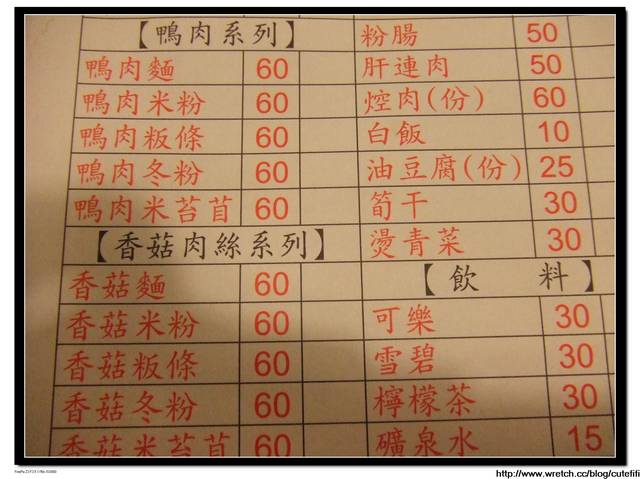 【鴨肉系列】
鴨肉麵 60
鴨肉米粉 60
鴨肉粄條 60
鴨肉冬粉 60
鴨肉米苔苜 60
【香菇肉絲系列】
香菇麵 60
香菇米粉 60
香菇粄條 60
香菇冬粉 60
香菇米苔苜 60
粉腸 50
肝連肉 50
焢肉(份) 60
白飯 10
油豆腐(份) 25
筍干 30
燙青菜 30
【飲 料】
可樂 30
雪碧 30
檸檬茶 30
礦泉水 15
http://www.wretch.cc/blog/cutefifi